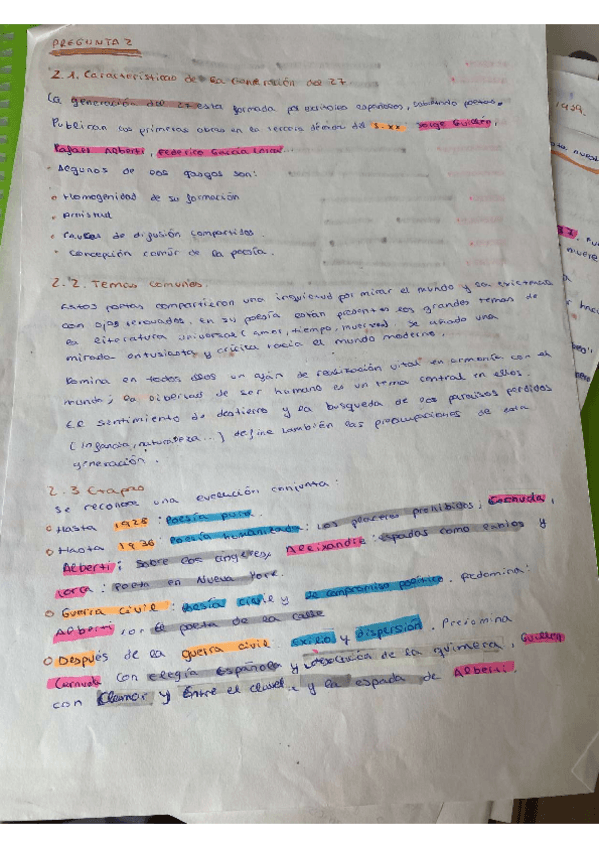 PREGUNTA 2
2.1. Características de la Generación del 27
La generación del 27 esta formada por escritores españoles, sobretodo poetas.
Publican las primeras obras en la tercera década del s.xx Jorge Guillén,
Rafael Alberti, Federico García Lorca...
Algunos de sus rasgos son:
Homogenidad de su formación
Amistad
Cauces de difusión compartidos.
Concepción común de la poesía.
2.2. Temas comunes.
Estos poetas compartieron una inquietud por mirar el mundo y su existencia
con ojos renovados. En su poesía están presentes los grandes temas de
la literatura universal (amor, tiempo, muerte). Se añade una
mirada entusiasta y crítica hacia el mundo moderno.
Domina en todos ellos un afán de realización vital en armonía con el
mundo; la libertad de ser humano es un tema central en ellos.
El sentimiento de destierro y la busqueda de los paraísos perdidos
(infancia, naturaleza...) define también las preocupaciones de esta
generación.
2.3 Etapas
Se reconoce una evolución conjunta:
Hasta 1928: Poesía pura.
Hasta 1936: Poesía humanizada: Los placeres prohibidos, Cernuda,
Alberti: Sobre los ángeles, Aleixandre: espadas como labios y
Lorca: Poeta en Nueva York.
Guerra civil: poesía y de compromiso político. Predomina:
Alberti con El poeta de la calle
Después de la guerra civil: exilio y dispersión. Predomina
Cernuda con elegía Española y desolación de la quimera, Guillén
con Clamor y Entre el clavel y la espada de Alberti.
1939.